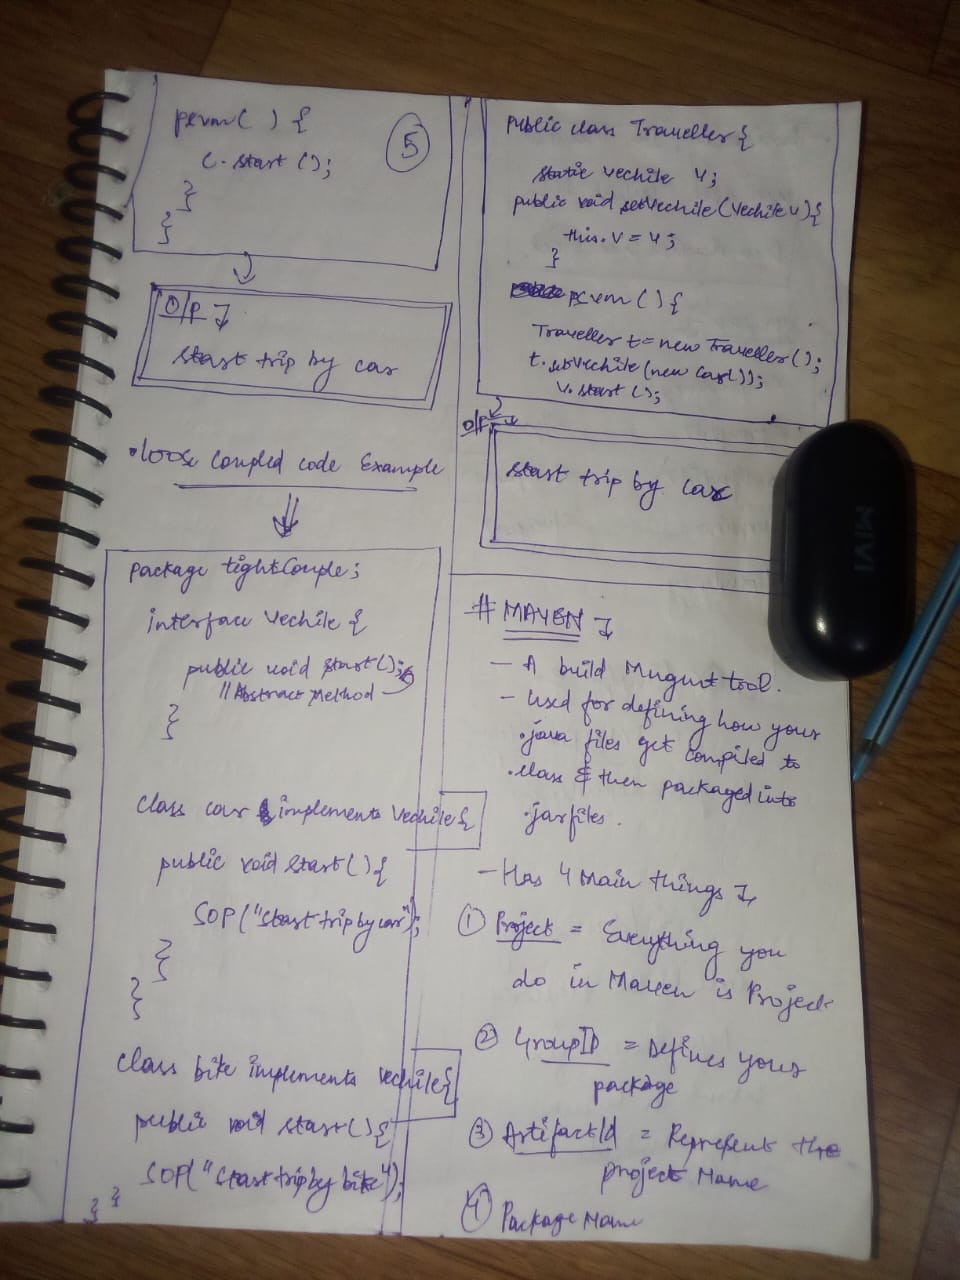 psvm( ) {
⑤
c. start ( );
}
}
O/P
start trip by car
• loose coupled code Example
package tightCouple;
interface vechile {
public void start( );
// Abstract Method
}
class car implements vechile {
public void start( ) {
SOP("start trip by car");
}
}
class bite implements vechile {
public void start( ) {
SOP("start trip by bike");
} }
public class Traveller {
static vechile v;
public void setvechile (vechile v) {
this. v = v;
}
psvm ( ) {
Traveller t = new Traveller ( );
t. setvechile (new car( ));
v. start ( );
O/P
start trip by car
# MAVEN
— A build Mngmt tool.
— used for defining how your
.java files get compiled to
.class & then packaged into
.jar files.
— Has 4 Main things
① Project = Everything you
do in Maven is Project
② GroupID = Defines your
package
③ ArtifactId = Represent the
project Name
④ Package Name
MIVI